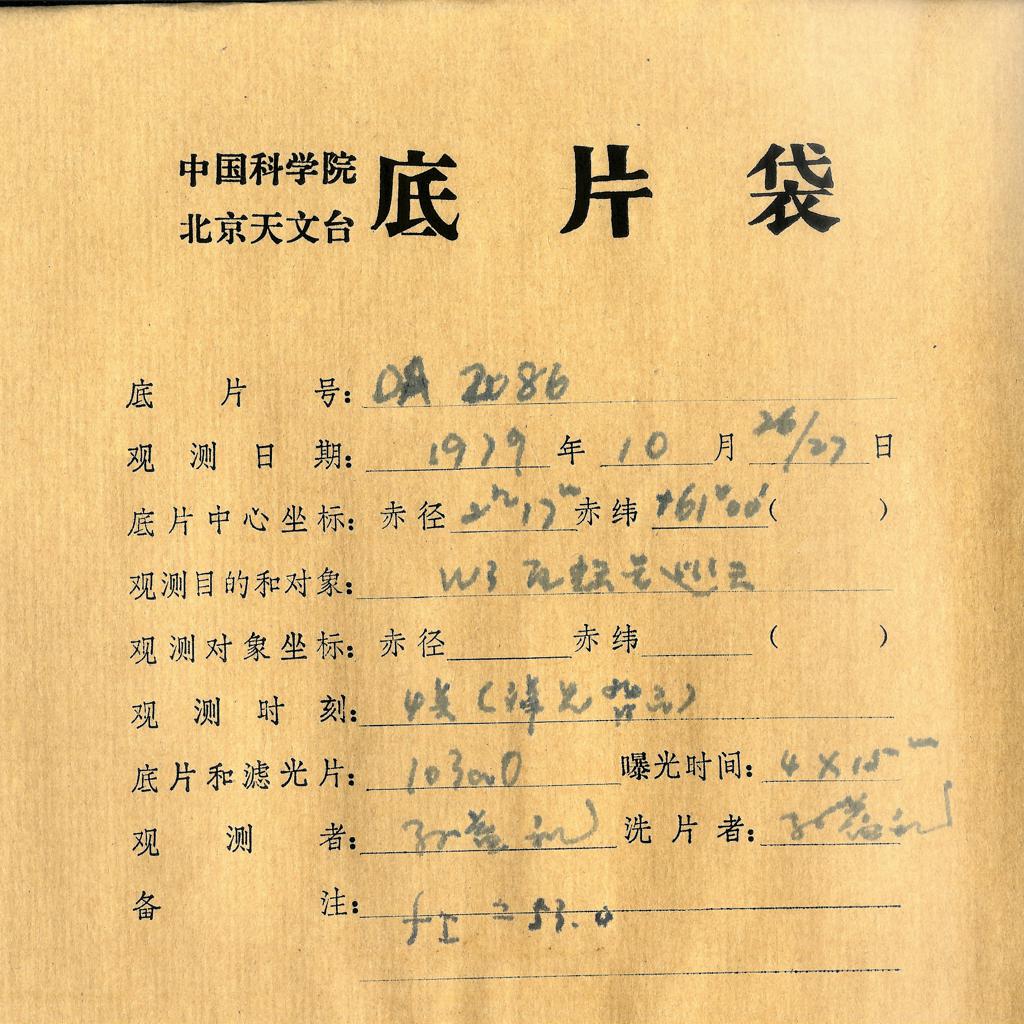 中国科学院
北京天文台
底片袋
底片号：DA 2086
观测日期：1979年10月26/27日
底片中心坐标：赤径 2ʰ17ᵐ 赤纬 +61°00′（ ）
观测目的和对象：W3
观测对象坐标：赤径 赤纬 （ ）
观测时刻：4
底片和滤光片：103aO 曝光时间：4×15ᵐ
观测者： 洗片者：
备注：
= 53.0